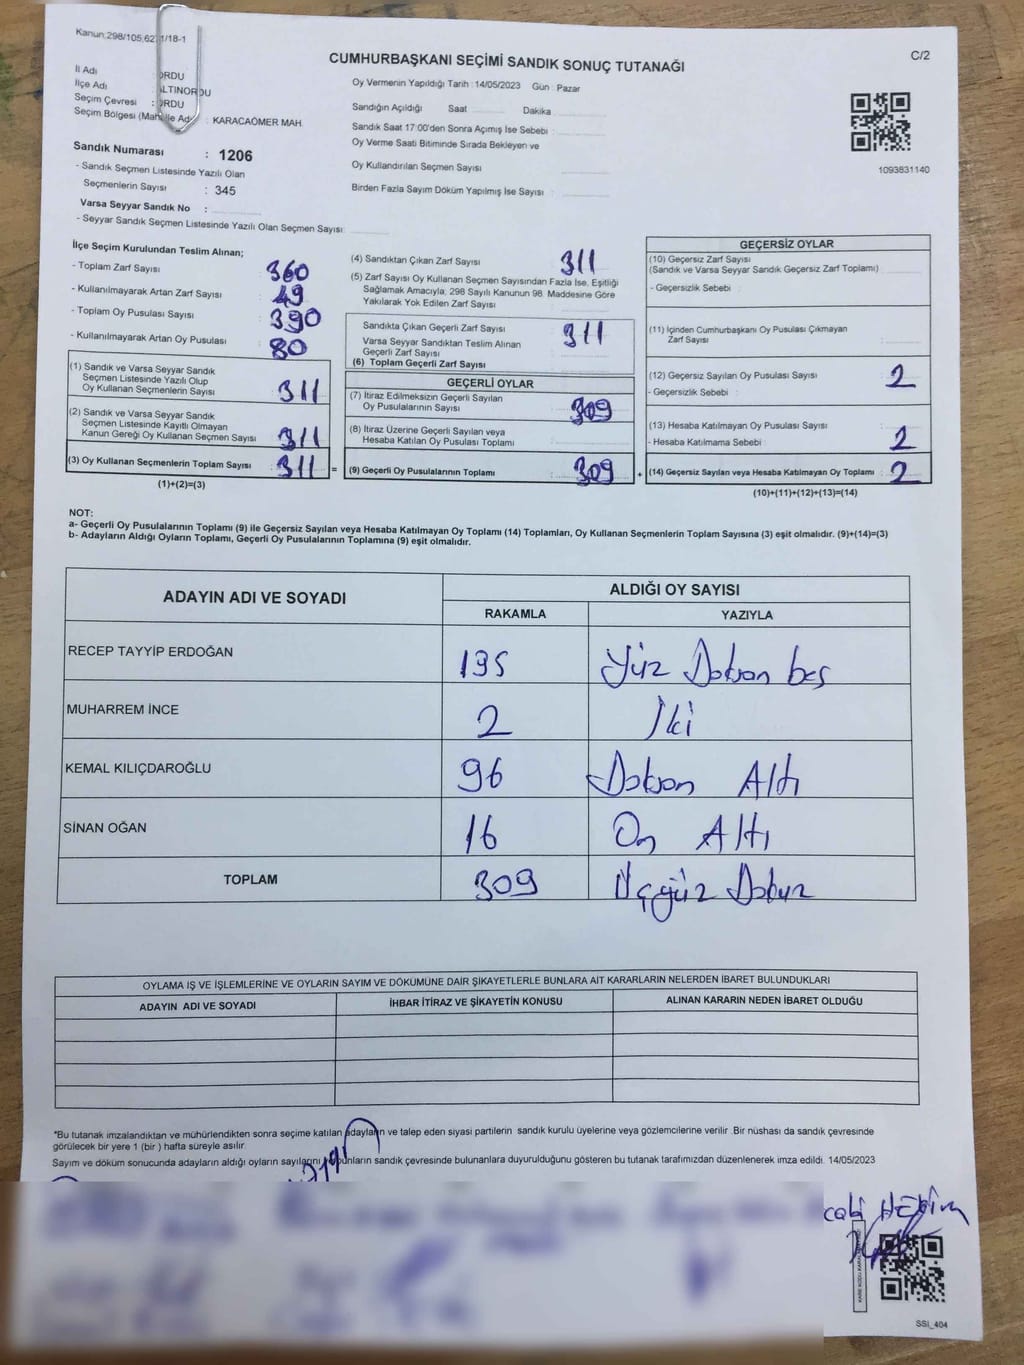 Kanun:298/105,62 1/18-1
C/2
CUMHURBAŞKANI SEÇİMİ SANDIK SONUÇ TUTANAĞI
İl Adı ORDU
İlçe Adı ALTINORDU
Seçim Çevresi : ORDU
Seçim Bölgesi (Mahalle Adı : KARACAÖMER MAH.
Sandık Numarası : 1206
- Sandık Seçmen Listesinde Yazılı Olan
Seçmenlerin Sayısı : 345
Varsa Seyyar Sandık No :
- Seyyar Sandık Seçmen Listesinde Yazılı Olan Seçmen Sayısı:
Oy Vermenin Yapıldığı Tarih : 14/05/2023 Gün : Pazar
Sandığın Açıldığı Saat Dakika
Sandık Saat 17:00'den Sonra Açımış İse Sebebi :
Oy Verme Saati Bitiminde Sırada Bekleyen ve
Oy Kullandırılan Seçmen Sayısı
Birden Fazla Sayım Döküm Yapılmış İse Sayısı :
1093831140
İlçe Seçim Kurulundan Teslim Alınan;
- Toplam Zarf Sayısı : 360
- Kullanılmayarak Artan Zarf Sayısı : 49
- Toplam Oy Pusulası Sayısı : 390
- Kullanılmayarak Artan Oy Pusulası : 80
(1) Sandık ve Varsa Seyyar Sandık
Seçmen Listesinde Yazılı Olup
Oy Kullanan Seçmenlerin Sayısı : 311
(2) Sandık ve Varsa Seyyar Sandık
Seçmen Listesinde Kayıtlı Olmayan
Kanun Gereği Oy Kullanan Seçmen Sayısı : 311
(3) Oy Kullanan Seçmenlerin Toplam Sayısı : 311 =
(1)+(2)=(3)
(4) Sandıktan Çıkan Zarf Sayısı : 311
(5) Zarf Sayısı Oy Kullanan Seçmen Sayısından Fazla İse, Eşitliği
Sağlamak Amacıyla, 298 Sayılı Kanunun 98. Maddesine Göre
Yakılarak Yok Edilen Zarf Sayısı :
Sandıkta Çıkan Geçerli Zarf Sayısı : 311
Varsa Seyyar Sandıktan Teslim Alınan
Geçerli Zarf Sayısı
(6) Toplam Geçerli Zarf Sayısı
GEÇERLİ OYLAR
(7) İtiraz Edilmeksizin Geçerli Sayılan
Oy Pusulalarının Sayısı : 309
(8) İtiraz Üzerine Geçerli Sayılan veya
Hesaba Katılan Oy Pusulası Toplamı
(9) Geçerli Oy Pusulalarının Toplamı : 309 +
GEÇERSİZ OYLAR
(10) Geçersiz Zarf Sayısı
(Sandık ve Varsa Seyyar Sandık Geçersiz Zarf Toplamı)
- Geçersizlik Sebebi :
(11) İçinden Cumhurbaşkanı Oy Pusulası Çıkmayan
Zarf Sayısı
(12) Geçersiz Sayılan Oy Pusulası Sayısı : 2
- Geçersizlik Sebebi :
(13) Hesaba Katılmayan Oy Pusulası Sayısı
- Hesaba Katılmama Sebebi : 2
(14) Geçersiz Sayılan veya Hesaba Katılmayan Oy Toplamı : 2
(10)+(11)+(12)+(13)=(14)
NOT:
a- Geçerli Oy Pusulalarının Toplamı (9) ile Geçersiz Sayılan veya Hesaba Katılmayan Oy Toplamı (14) Toplamları, Oy Kullanan Seçmenlerin Toplam Sayısına (3) eşit olmalıdır. (9)+(14)=(3)
b- Adayların Aldığı Oyların Toplamı, Geçerli Oy Pusulalarının Toplamına (9) eşit olmalıdır.
ADAYIN ADI VE SOYADI ALDIĞI OY SAYISI
RAKAMLA YAZIYLA
RECEP TAYYİP ERDOĞAN 195 Yüz Doksan beş
MUHARREM İNCE 2 İki
KEMAL KILIÇDAROĞLU 96 Doksan Altı
SİNAN OĞAN 16 On Altı
TOPLAM 309 Üçyüz Dokuz
OYLAMA İŞ VE İŞLEMLERİNE VE OYLARIN SAYIM VE DÖKÜMÜNE DAİR ŞİKAYETLERLE BUNLARA AİT KARARLARIN NELERDEN İBARET BULUNDUKLARI
ADAYIN ADI VE SOYADI İHBAR İTİRAZ VE ŞİKAYETİN KONUSU ALINAN KARARIN NEDEN İBARET OLDUĞU
*Bu tutanak imzalandıktan ve mühürlendikten sonra seçime katılan adayların ve talep eden siyasi partilerin sandık kurulu üyelerine veya gözlemcilerine verilir. Bir nüshası da sandık çevresinde
görülecek bir yere 1 (bir ) hafta süreyle asılır.
Sayım ve döküm sonucunda adayların aldığı oyların sayılarını bunların sandık çevresinde bulunanlara duyurulduğunu gösteren bu tutanak tarafımızdan düzenlenerek imza edildi. 14/05/2023
SSI_404